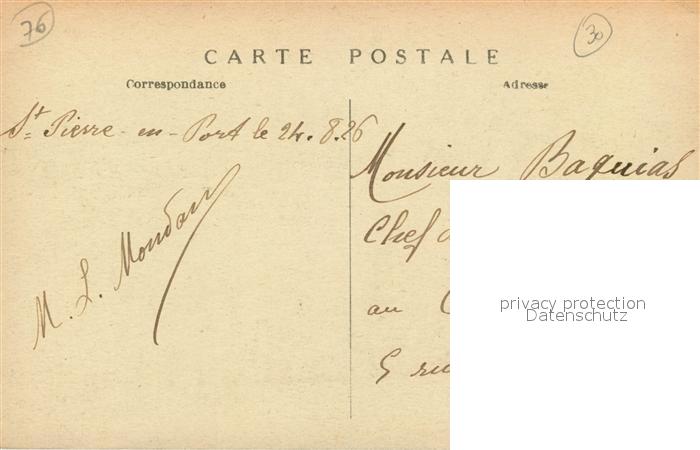 76
30
CARTE POSTALE
Correspondance
Adresse
St Pierre-en-Port le 24.8.26
M. L. Mondan
Monsieur Baquias
Chef
au
5 ru
privacy protection
Datenschutz